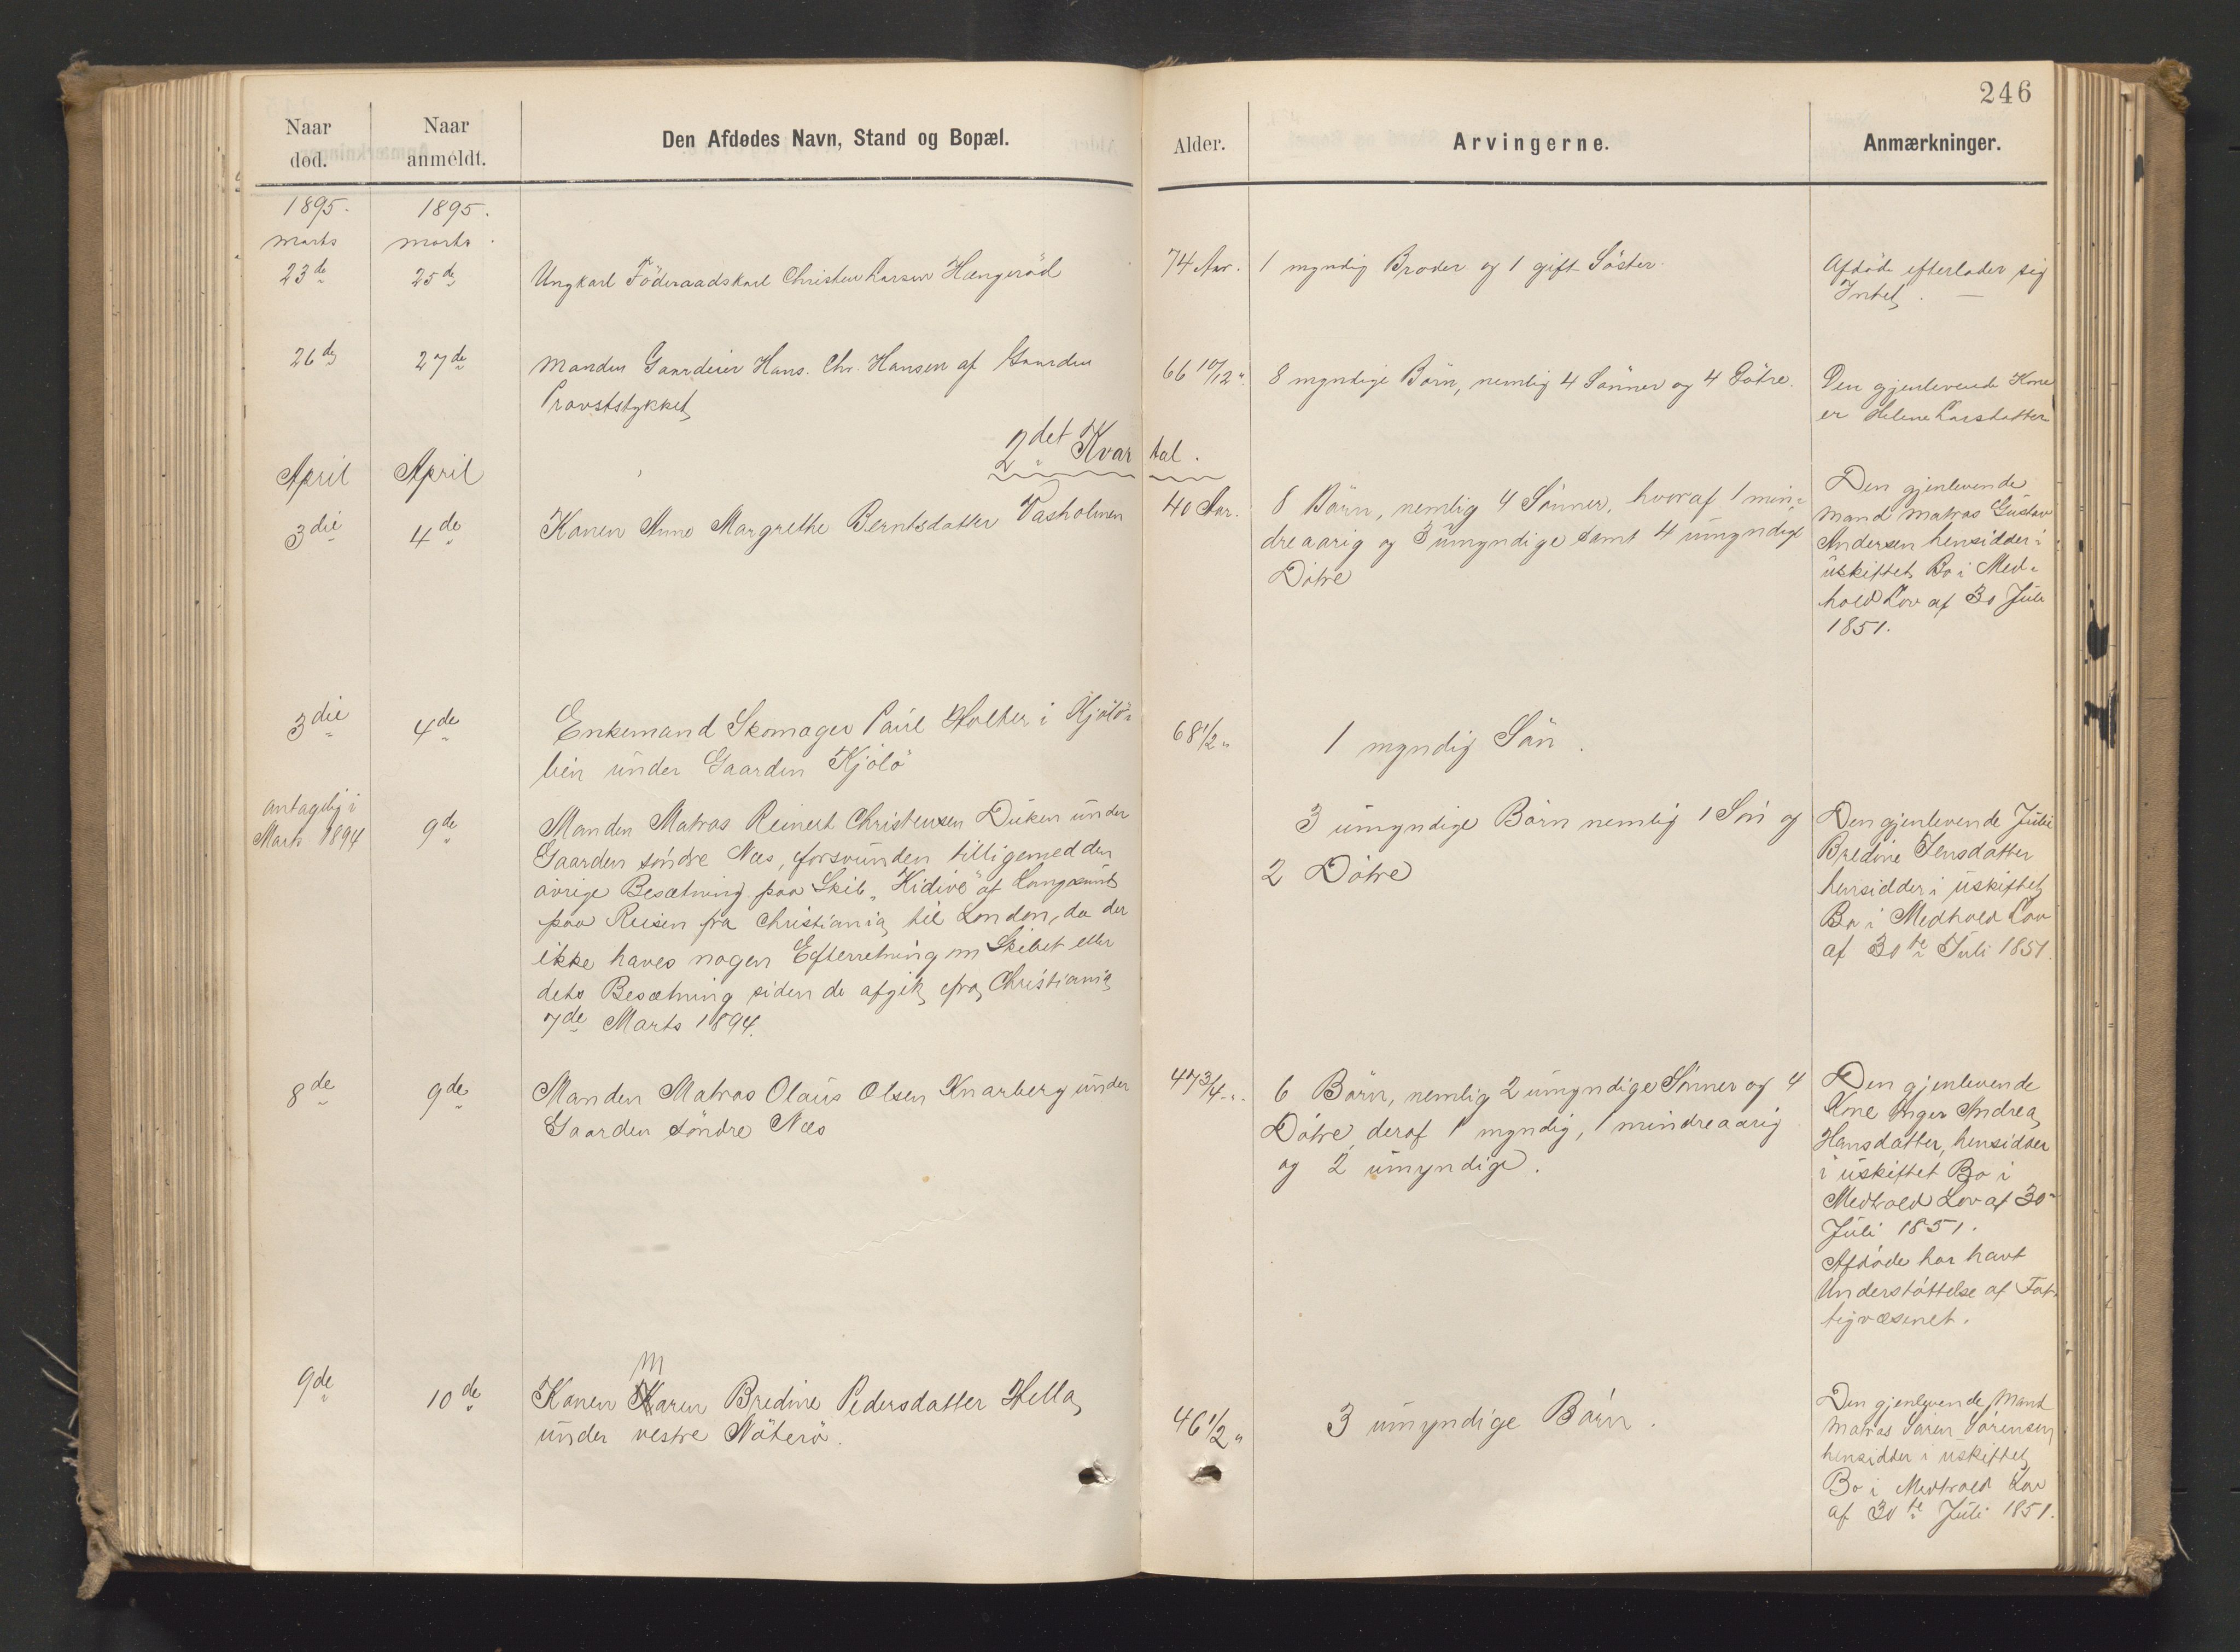 246
Naar
død.
Naar
anmeldt.
Den Afdødes Navn, Stand og Bopæl.
Alder.
Arvingerne.
Anmærkninger.
1895.
1895.
Marts
Marts.
23de
25de
Ungkarl Föderaadskarl Christen Larsen Hængeröd
74 Aar.
1 myndig Broder og 1 gift Söster.
Afdöde efterlader sig
Intet.
26de
27de
Manden Gaardeier Hans. Chr. Hansen af Gaarden
Provststykket
66 10/12 "
8 myndige Börn, nemlig 4 Sönner og 4 Dötre.
Den gjenlevende Kone
er Helene Larsdatter
2det Kvartal.
April
April
3die
4de
Konen Anne Margrethe Berntsdatter Vasholmen
40 Aar.
8 Börn, nemlig 4 Sönner, hvoraf 1 min-
dreaarig og 3 umyndige samt 4 umyndige
Dötre
Den gjenlevende
Mand Matros Gustav
Andersen hensidder i
uskiftet Bo i Med-
hold Lov af 30 Juli
1851.
3die
4de
Enkemand Skomager Paul Holter i Kjölö-
bein under Gaarden Kjölö
68 1/2 "
1 myndig Sön.
antagelig i
Marts 1894
9de
Manden Matros Reinert Christensen Duken under
Gaarden söndre Næs, forsvunden tilligemed den
övrige Besætning paa Skib "Kidive" af Langesund
paa Reisen fra Christiania til London, da der
ikke haves nogen Efterretning om Skibet eller
dets Besætning siden de afgik fra Christiania
7de Marts 1894.
3 umyndige Börn nemlig 1 Sön og
2 Dötre
Den gjenlevende Julie
Bredine Jensdatter
hensidder i uskiftet
Bo i Medhold Lov
af 30te Juli 1851.
8de
9de
Manden Matros Olaus Olsen Knarberg under
Gaarden söndre Næs
47 3/4 "
6 Börn, nemlig 2 umyndige Sönner og 4
Dötre, deraf 1 myndig, 1 mindreaarig
og 2 umyndige.
Den gjenlevende
Kone Inger Andrea
Hansdatter, hensidder
i uskiftet Bo i
Medhold Lov af 30
Juli 1851.
Afdöde har havt
Understöttelse af Fat-
tigvæsenet.
9de
10de
M
Konen Karen Bredine Pedersdatter Hella
under vestre Nöterö.
46 1/2 "
3 umyndige Börn.
Den gjenlevende Mand
Matros Sören Sörensen
hensidder i uskiftet
Bo i Medhold Lov
af 30te Juli 1851.